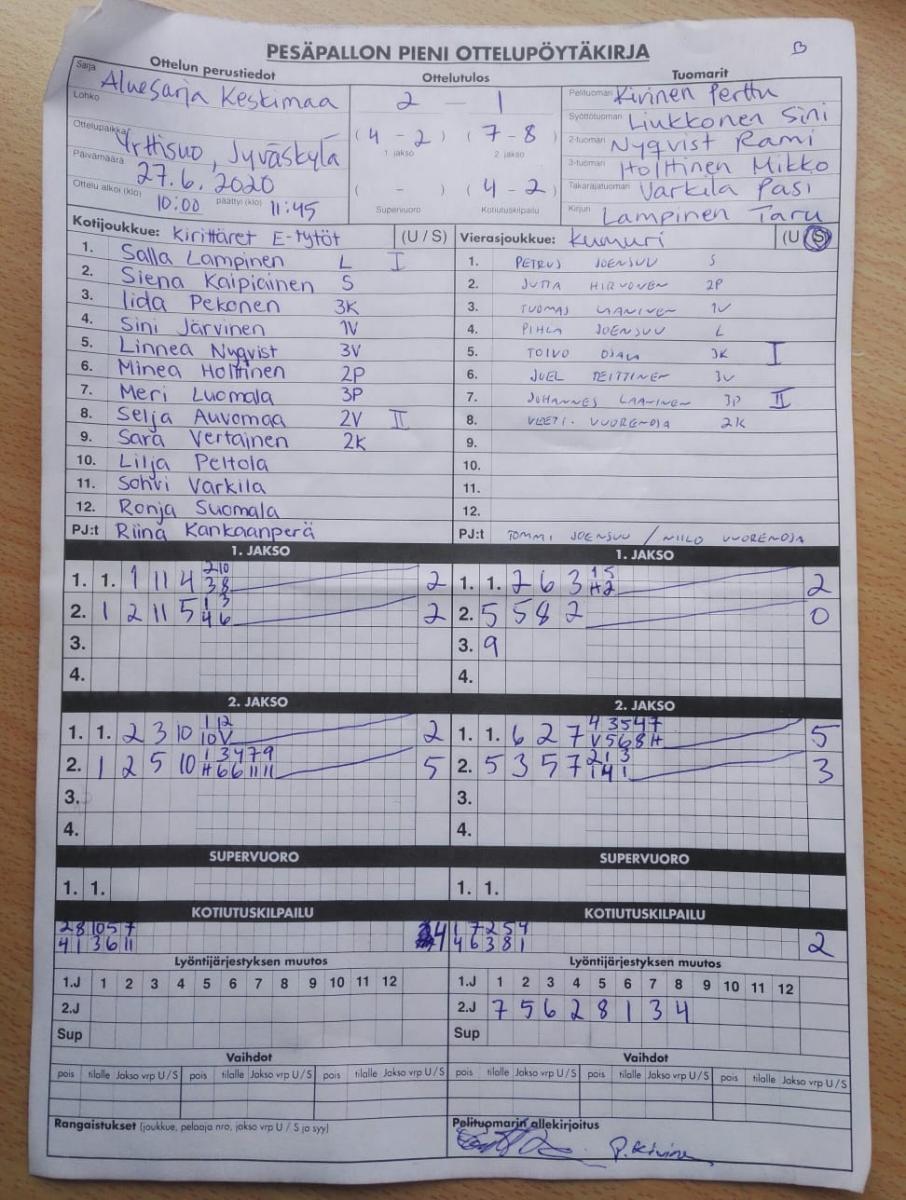 PESÄPALLON PIENI OTTELUPÖYTÄKIRJA
B
Ottelun perustiedot
Sarja Aluesarja Keskimaa
Lohko
Ottelupaikka Yrttisuo, Jyväskylä
Päivämäärä 27.6.2020
Ottelu alkoi (klo) 10:00 päättyi (klo) 11:45
Ottelutulos
2 - 1
(4 - 2) (7 - 8)
1. jakso 2. jakso
( - ) (4 - 2)
Supervuoro Kotiutuskilpailu
Tuomarit
Pelituomari Kivinen Perttu
Syöttötuomari Liukkonen Sini
2-tuomari Nyqvist Rami
3-tuomari Holttinen Mikko
Takarajatuomari Varkila Pasi
Kirjuri Lampinen Taru
Kotijoukkue: Kirittäret E-tytöt (U / S)
1. Salla Lampinen L I
2. Siena Kaipiainen S
3. Iida Pekonen 3K
4. Sini Järvinen 1V
5. Linnea Nyqvist 3V
6. Minea Holttinen 2P
7. Meri Luomala 3P
8. Selja Auvomaa 2V II
9. Sara Vertainen 2K
10. Lilja Peltola
11. Sohvi Varkila
12. Ronja Suomala
PJ:t Riina Kankaanperä
Vierasjoukkue: Kumuri (U / S)
1. PETRUS JOENSUU S
2. JUTTA HIRVONEN 2P
3. TUOMAS LAANINEN 1V
4. PIHLA JOENSUU L
5. TOIVO OJALA 3K I
6. JUEL TEITTINEN 3V
7. JOHANNES LAANINEN 3P II
8. VEETI VUORENOJA 2K
9.
10.
11.
12.
PJ:t TOMMI JOENSUU / NIILO VUORENOJA
1. JAKSO
1. 1. 1 11 4 2 10 2
3 8
2. 1 2 11 5 1 3 2
4 6
3.
4.
1. JAKSO
1. 1. 2 6 3 1 5 2
H 2
2. 5 5 8 2 0
3. 9
4.
2. JAKSO
1. 1. 2 3 10 1 12 2
10 V
2. 1 2 5 10 1 3 4 7 9 5
H 6 6 11 11
3.
4.
2. JAKSO
1. 1. 6 2 7 4 3 5 4 7 5
V 5 6 8 H
2. 5 3 5 7 2 1 3 3
1 4 1
3.
4.
SUPERVUORO
1. 1.
SUPERVUORO
1. 1.
KOTIUTUSKILPAILU
2 8 10 5 7 4
4 1 3 6 11
KOTIUTUSKILPAILU
1 7 2 5 4 2
4 6 3 8 1
Lyöntijärjestyksen muutos
1.J 1 2 3 4 5 6 7 8 9 10 11 12
2.J
Sup
Lyöntijärjestyksen muutos
1.J 1 2 3 4 5 6 7 8 9 10 11 12
2.J 7 5 6 2 8 1 3 4
Sup
Vaihdot
pois tilalle Jakso vrp U / S pois tilalle Jakso vrp U / S pois tilalle Jakso vrp U / S
Vaihdot
pois tilalle Jakso vrp U / S pois tilalle Jakso vrp U / S pois tilalle Jakso vrp U / S
Rangaistukset (joukkue, pelaaja nro, jakso vrp U / S ja syy)
Pelituomarin allekirjoitus